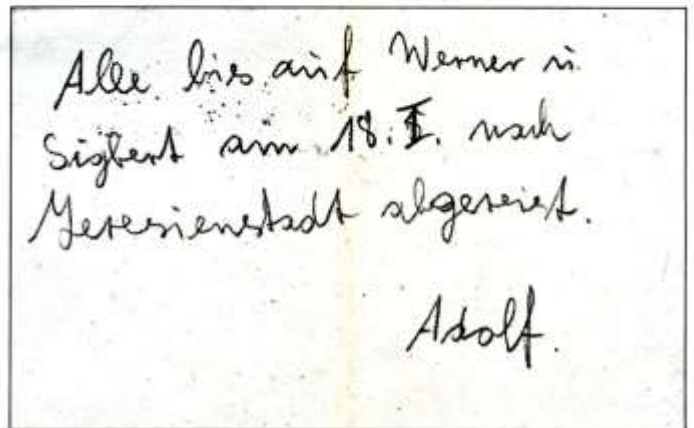 Alle bis auf Werner u.
Sigbert am 18. I. nach
Teresienstadt abgereist.
Adolf.